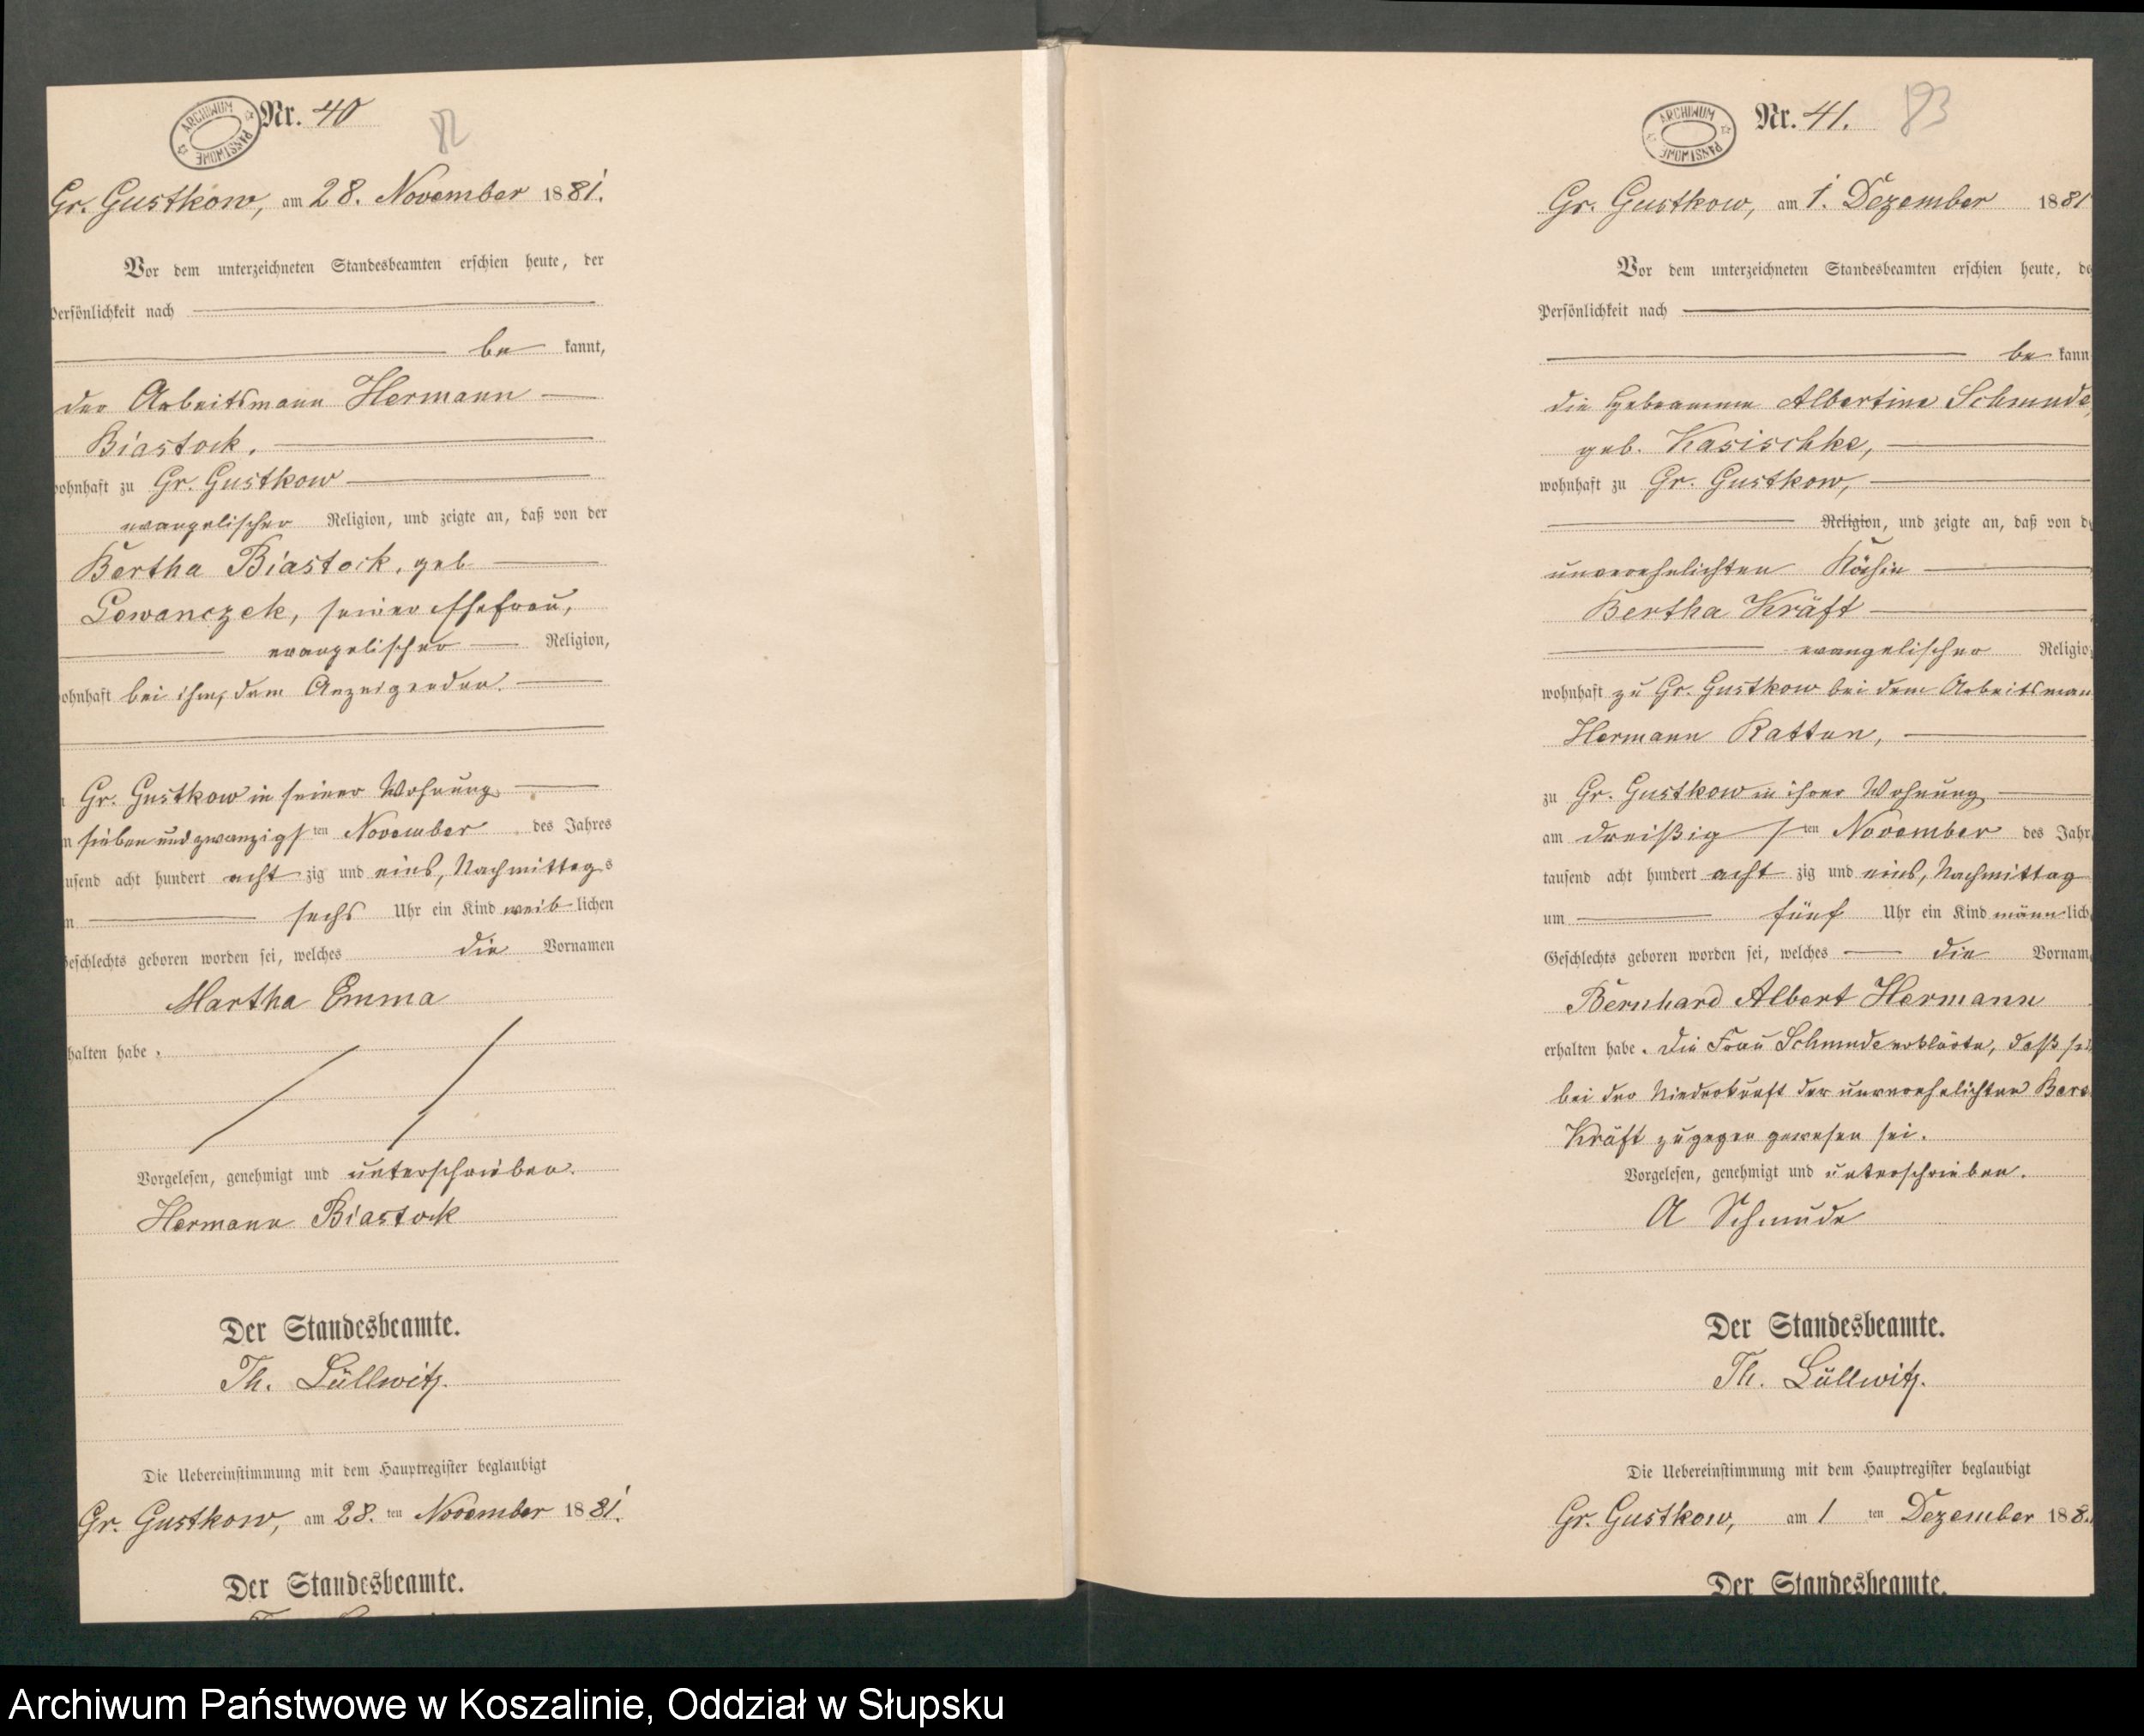 ARCHIWUM PAŃSTWOWE
Nr. 40
82
Gr. Gustkow, am 28. November 1881.
Vor dem unterzeichneten Standesbeamten erschien heute, der
Persönlichkeit nach
be kannt,
der Arbeitsmann Hermann
Biastock.
wohnhaft zu Gr. Gustkow
evangelischer Religion, und zeigte an, daß von der
Bertha Biastock, geb
Gewanczek, seiner Ehefrau,
evangelischer Religion,
wohnhaft bei ihm, dem Anzeigenden.
Gr. Gustkow in seiner Wohnung
sieben und zwanzigsten November des Jahres
tausend acht hundert acht zig und eins, Nachmittags
sechs Uhr ein Kind weib lichen
Geschlechts geboren worden sei, welches die Vornamen
Martha Emma
halten habe.
Vorgelesen, genehmigt und unterschrieben.
Hermann Biastock
Der Standesbeamte.
Th. Lüllwitz.
Die Uebereinstimmung mit dem Hauptregister beglaubigt
Gr. Gustkow, am 28. ten November 1881.
Der Standesbeamte.
ARCHIWUM PAŃSTWOWE
Nr. 41.
83
Gr. Gustkow, am 1. Dezember 1881
Vor dem unterzeichneten Standesbeamten erschien heute, de
Persönlichkeit nach
be kann
die Hebeamme Albertine Schmude,
geb. Kasischke,
wohnhaft zu Gr. Gustkow,
Religion, und zeigte an, daß von de
unverehelichten Köchin
Bertha Kräft
evangelischer Religio
wohnhaft zu Gr. Gustkow bei dem Arbeitsman
Hermann Ratten,
zu Gr. Gustkow in ihrer Wohnung
am dreißig sten November des Jahr
tausend acht hundert acht zig und eins, Nachmittag
um fünf Uhr ein Kind männ lich
Geschlechts geboren worden sei, welches die Vornam
Bernhard Albert Hermann
erhalten habe. Die Frau Schmude erklärte, daß sie
bei der Niederkunft der unverehelichten Bert
Kräft zugegen gewesen sei.
Vorgelesen, genehmigt und unterschrieben.
A Schmude
Der Standesbeamte.
Th. Lüllwitz.
Die Uebereinstimmung mit dem Hauptregister beglaubigt
Gr. Gustkow, am 1 ten Dezember 188
Der Standesbeamte.
Archiwum Państwowe w Koszalinie, Oddział w Słupsku